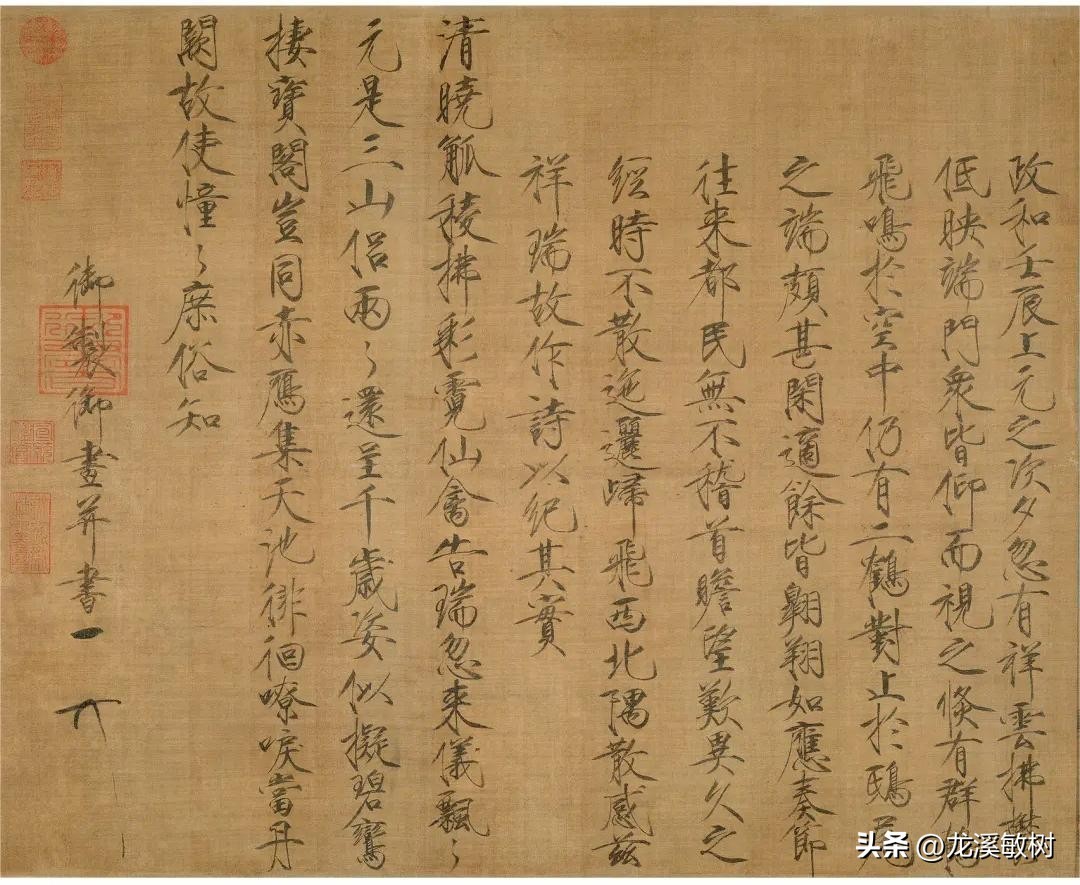 政和壬辰上元之次夕忽有祥雲拂鬱
低映端門衆皆仰而視之倏有群鶴
飛鳴於空中仍有二鶴對止於鴟尾
之端頗甚閑適餘皆翱翔如應奏節
往来都民無不稽首瞻望歎異久之
經時不散迤邐歸飛西北隅散感茲
祥瑞故作詩以紀其實
清曉觚稜拂彩霓仙禽告瑞忽来儀飄々
元是三山侶兩々還呈千歳姿似擬碧鸞
棲寶閣豈同赤鴈集天池徘徊嘹唳當丹
闕故使憧々庶俗知
御製御畫并書
头条 @龙溪敏树